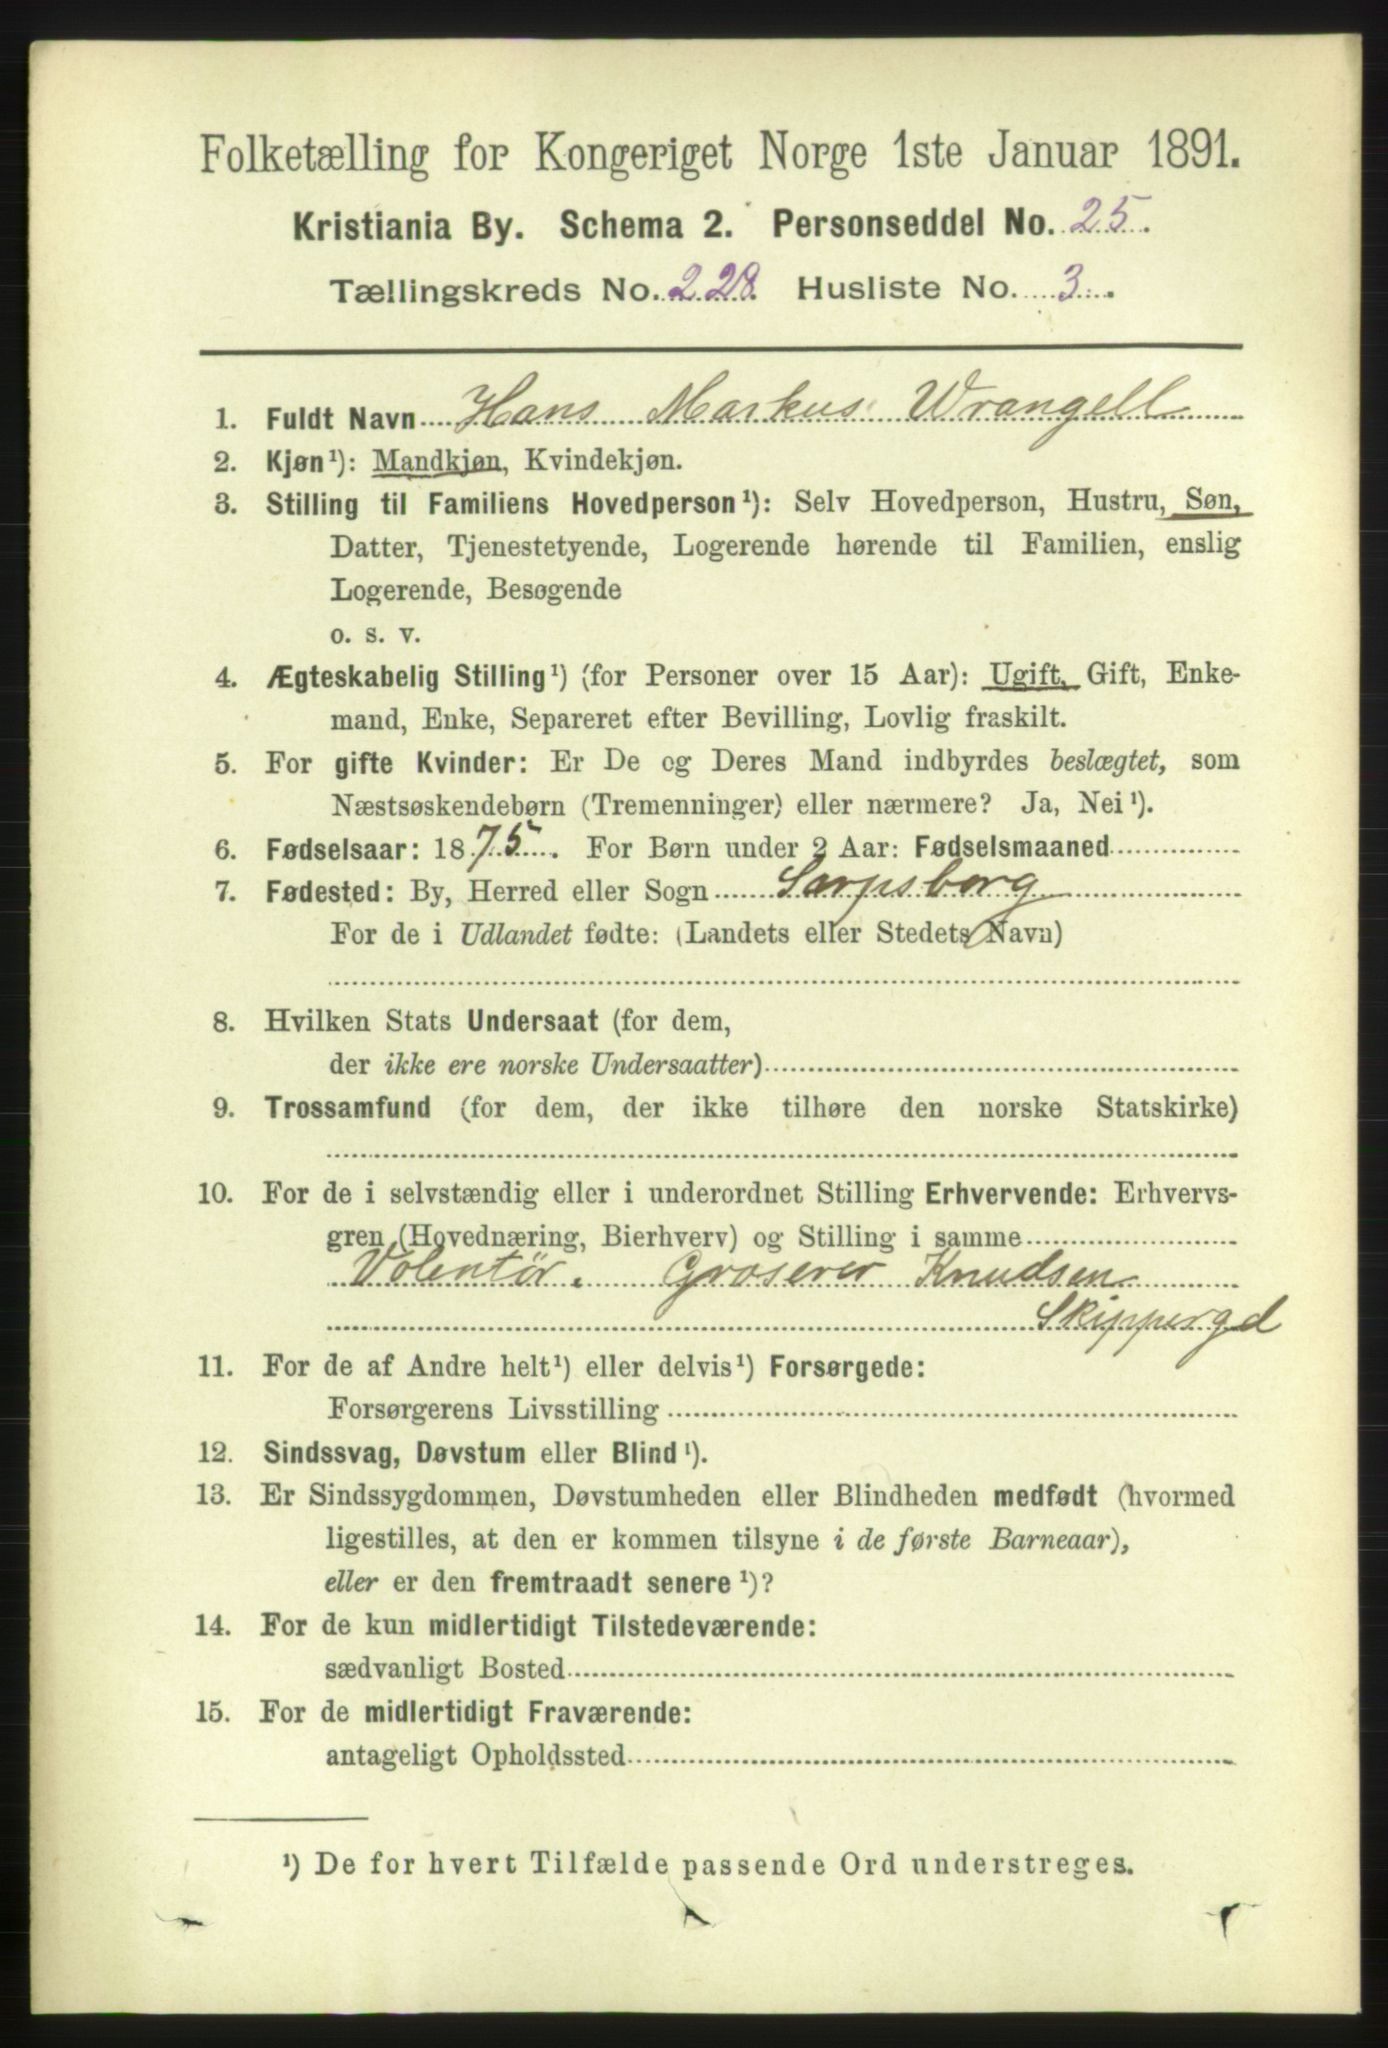 Folketælling for Kongeriget Norge 1ste Januar 1891.
Kristiania By. Schema 2. Personseddel No. 25.
Tællingskreds No. 228. Husliste No. 3.
1. Fuldt Navn Hans Markus Wrangell
2. Kjøn¹): Mandkjøn, Kvindekjøn.
3. Stilling til Familiens Hovedperson¹): Selv Hovedperson, Hustru, Søn,
Datter, Tjenestetyende, Logerende hørende til Familien, enslig
Logerende, Besøgende
o. s. v.
4. Ægteskabelig Stilling¹) (for Personer over 15 Aar): Ugift, Gift, Enke-
mand, Enke, Separeret efter Bevilling, Lovlig fraskilt.
5. For gifte Kvinder: Er De og Deres Mand indbyrdes beslægtet, som
Næstsøskendebørn (Tremenninger) eller nærmere? Ja, Nei¹).
6. Fødselsaar: 1875. For Børn under 2 Aar: Fødselsmaaned
7. Fødested: By, Herred eller Sogn Sarpsborg
For de i Udlandet fødte: (Landets eller Stedets Navn)
8. Hvilken Stats Undersaat (for dem,
der ikke ere norske Undersaatter)
9. Trossamfund (for dem, der ikke tilhøre den norske Statskirke)
10. For de i selvstændig eller i underordnet Stilling Erhvervende: Erhvervs-
gren (Hovednæring, Bierhverv) og Stilling i samme
Volentör. Groserer Knudsen
Skippergd
11. For de af Andre helt¹) eller delvis¹) Forsørgede:
Forsørgerens Livsstilling
12. Sindssvag, Døvstum eller Blind¹).
13. Er Sindssygdommen, Døvstumheden eller Blindheden medfødt (hvormed
ligestilles, at den er kommen tilsyne i de første Barneaar),
eller er den fremtraadt senere¹)?
14. For de kun midlertidigt Tilstedeværende:
sædvanligt Bosted
15. For de midlertidigt Fraværende:
antageligt Opholdssted
¹) De for hvert Tilfælde passende Ord understreges.